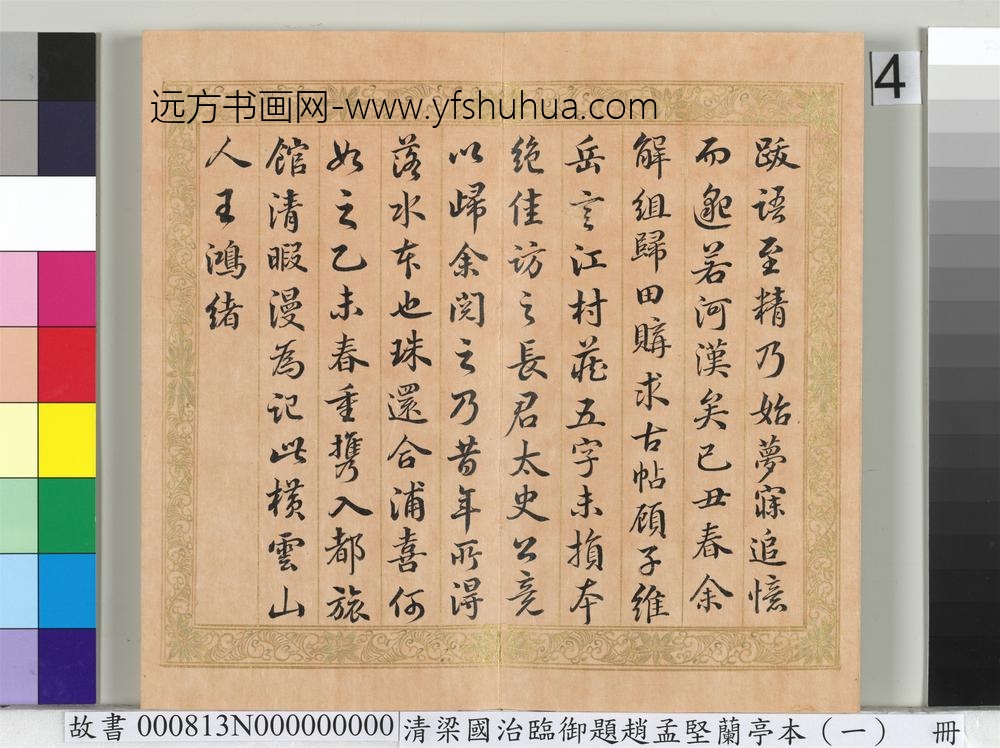 远方书画网-www.yfshuhua.com
4
跋語至精乃始夢寐追憶
而邈若河漢矣己丑春余
解組歸田購求古帖顧子維
岳言江村藏五字未損本
絕佳訪之長君太史公竟
以歸余閱之乃昔年所得
落水本也珠還合浦喜何
如之乙未春重携入都旅
館清暇漫為記此橫雲山
人王鴻緒
故書 000813N000000000 清梁國治臨御題趙孟堅蘭亭本（一） 冊